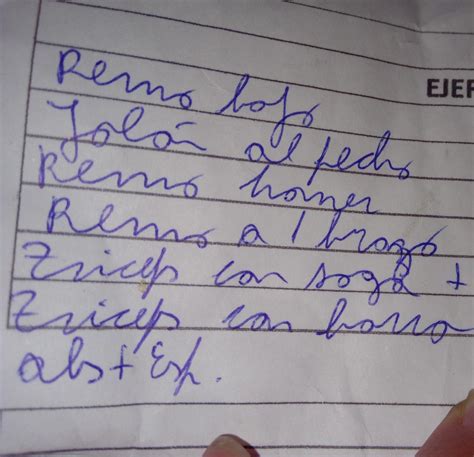 EJER
Remo bajo
Jalón al pecho
Remo hamer
Remo a 1 brazo
Tricep con soga +
Tricep con barra
abs + Esp.